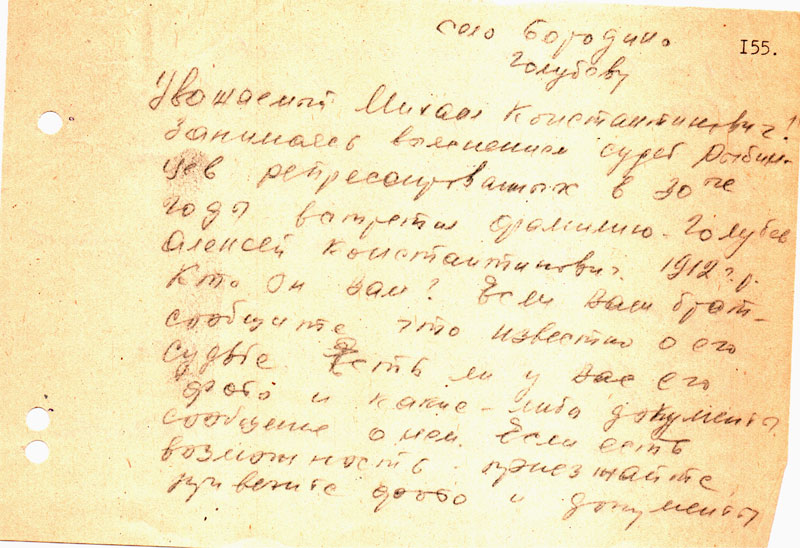 село Бородино
155.
Голубеву
Уважаемый Михаил Константинович!
Занимаясь выяснением судеб Рыбин-
цев репрессированных в 30 ые
годы встретил фамилию - Голубев
Алексей Константинович 1912 г.р.
Кто он вам? Если ваш брат -
сообщите что известно о его
судьбе Есть ли у вас его
фото и какие-либо документы
сообщите о нем. Если есть
возможность приезжайте,
привезите фото и документы